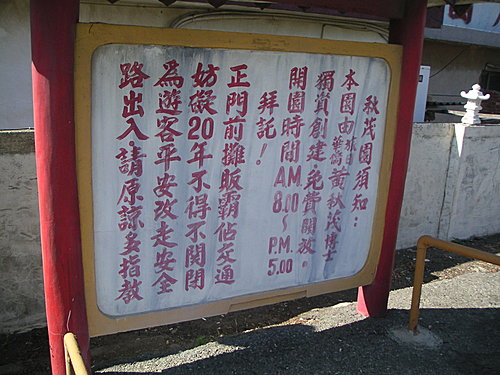 秋茂園須知：
本園由旅日華僑黃秋茂博士
獨資創建免費開放。
開園時間AM.8.00~P.M.5.00
拜託！
正門前攤販霸佔交通
妨礙20年不得不関閉
為遊客平安改走安全
路出入.請原諒多指教